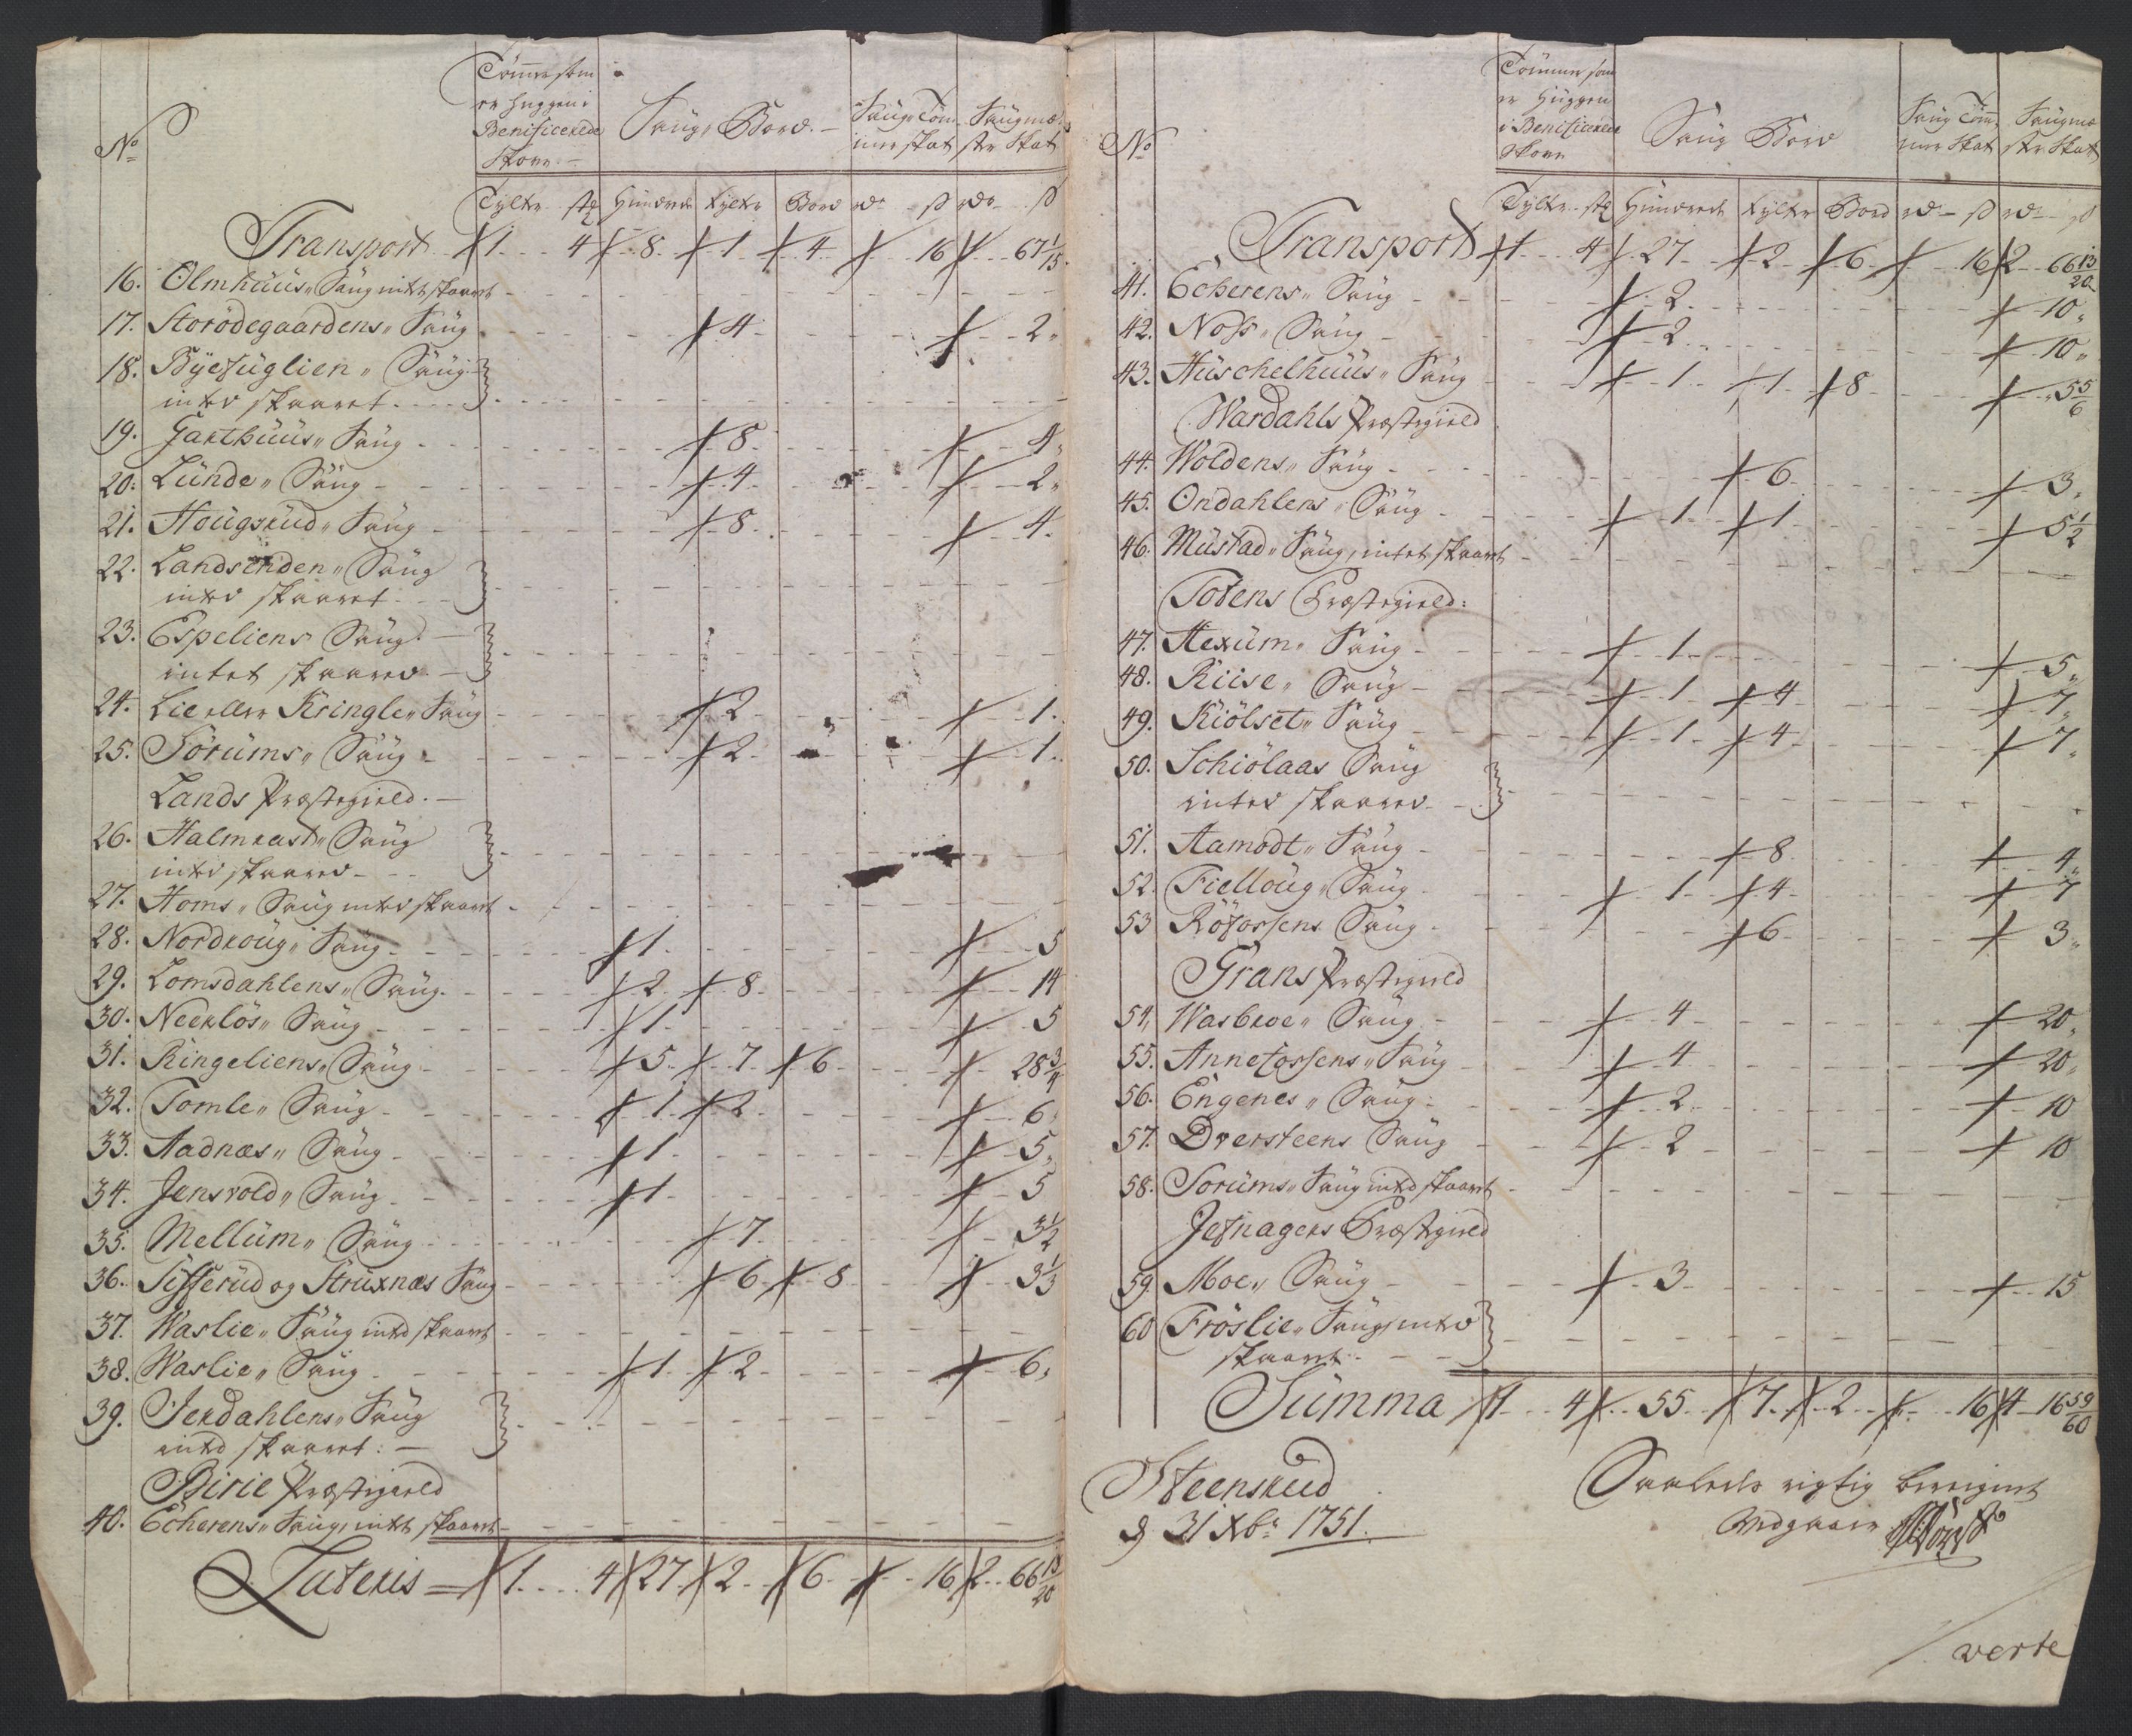 No
Tömmer som
er huggen i
Benificerede
Skove.
Saug Bord.
Saug Töm-
mer skat
Saugmæ-
ster Skat
Tylter stk Hundrede Tylter Bord rdr ß rdr ß
Transport 1 4 8 1 4 16 67 1/15
16. Olmhuus Saug intet skaaret
17. Storödegaardens Saug 4 2
18. Byefuglien Saug
intet skaaret
19. Garthuus Saug 8 4
20. Lunde Saug 4 2
21. Hougsrud Saug 8 4
22. Landsenden Saug
intet skaaret
23. Espeliens Saug
intet skaaret
24. Lie eller Kringle Saug 2 1
25. Sörums Saug 2 1
Lands Præstegield.
26. Halmrast Saug
intet skaaret
27. Homs Saug intet skaaret
28. Nordroug Saug 1 5
29. Lomsdahlens Saug 2 8 14
30. Neerlös Saug 1 5
31. Ringeliens Saug 5 7 6 28 3/4
32. Tomle Saug 1 2 6
33. Aadnæs Saug 1 5
34. Jensvold Saug 1 5
35. Mellum Saug 7 3 1/2
36. Sifferud og Struxnæs Saug 6 8 3 1/3
37. Waslie Saug intet skaaret
38. Waslie Saug 1 2 6
39. Jerdahlens Saug
intet skaaret
Birie Præstegield
40. Echerens Saug, intet skaaret
Lateris 1 4 27 2 6 16 2 66 13/20
No
Tömmer som
er Huggen
i Benificerede
Skove
Saug Bord
Saug Töm-
mer Skat
Saugmæ
ster Skat
Tylter stk Hundrede Tylter Bord rd ß rdr ß
Transport 1 4 27 2 6 16 2 66 13/20
41. Echerens Saug 2 10
42. Noss Saug 2 10
43. Huschelhuus Saug 1 1 8 5 5/6
Wardahls Præstegield
44. Woldens Saug 6 3
45. Ondahlens Saug 1 1 5 1/2
46. Mustad Saug, intet skaaret
Totens Præstegield:
47. Hexum Saug 1 5
48. Riise Saug 1 4 7
49. Kiölset Saug 1 4 7
50. Schiölaas Saug
intet skaaret
51. Aamodt Saug 8 4
52. Fielloug Saug 1 4 7
53 Röfossens Saug 6 3
Grans Præstegield
54. Wasbroe Saug 4 20
55. Annefossens Saug 4 20
56. Engenes Saug 2 10
57. Dversteens Saug 2 10
58. Sorums Saug intet skaaret
Jefnagers Præstegield
59. Moe Saug 3 15
60 Fröslie Saug, intet
skaaret
Summa 1 4 55 7 2 16 4 16 59/60
Steensrud
d 31 Xbr 1751.
Saaledes rigtig beregnet
verte